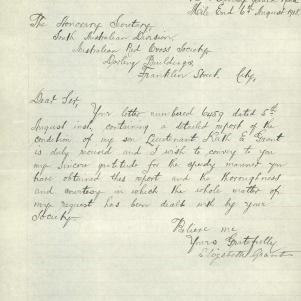 Mile End 6th August 191
The Honorary Secretary
South Australian Division
Australian Red Cross Society
Darling Buildings
Franklin Street City
Dear Sir,
Your letter numbered 6459 dated 5th
August inst, containing a detailed report of the
condition of my son Lieutenant Keith E Grant
is duly received and I wish to convey to you
my sincere gratitude for the speedy manner you
have obtained this report and the thoroughness
and courtesy in which the whole matter of
my request has been dealt with by your
Society.
Believe me
Yours Gratefully
Elizabeth Grant